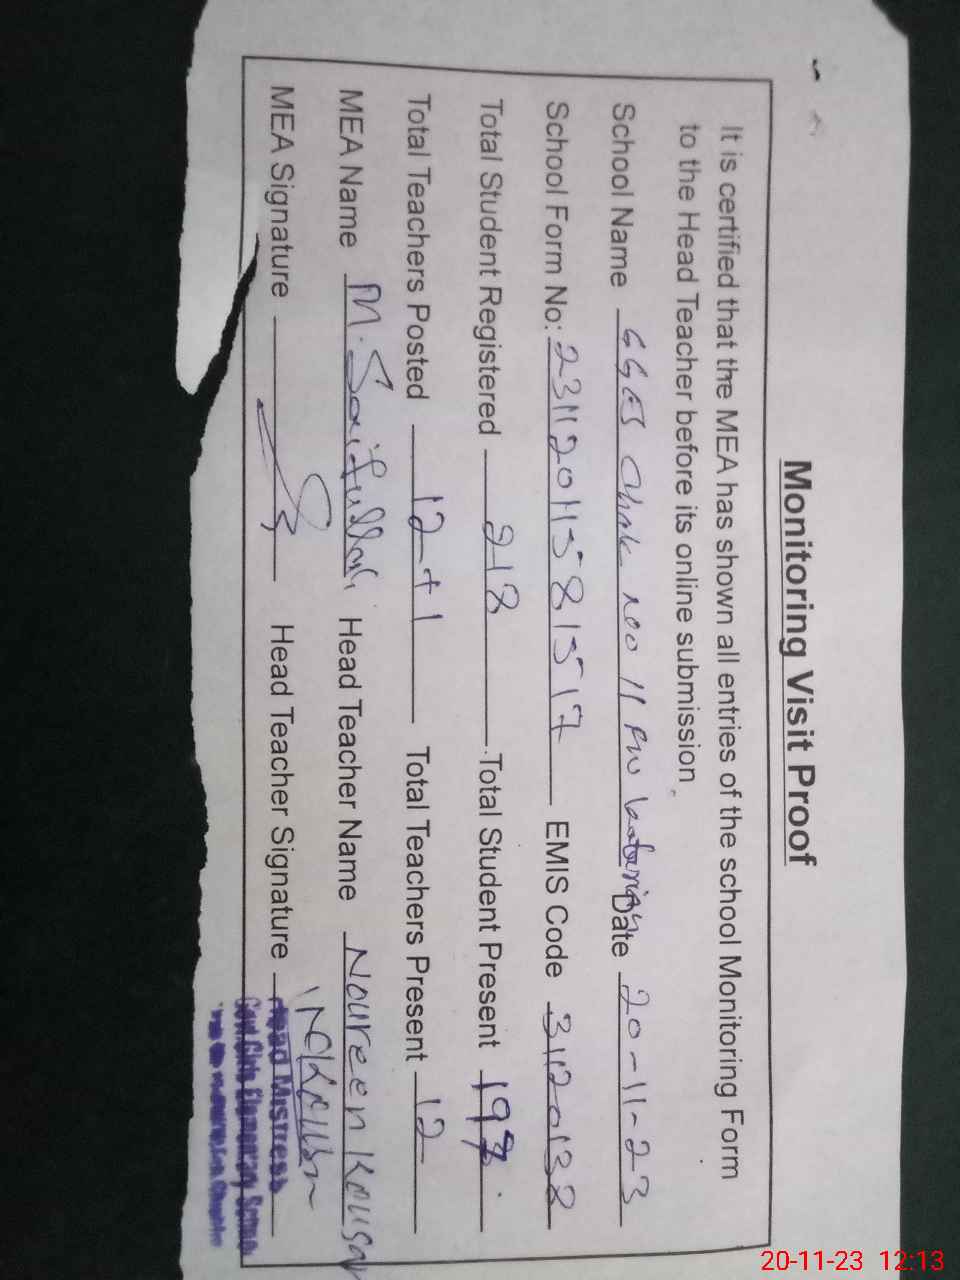 Monitoring Visit Proof
It is certified that the MEA has shown all entries of the school Monitoring Form
to the Head Teacher before its online submission.
School Name GGES Chak noo 11 Date 20-11-23
School Form No: EMIS Code 31120138
Total Student Registered 218 Total Student Present 198
Total Teachers Posted 12+1 Total Teachers Present 12
MEA Name M. Saifullah Head Teacher Name Noureen Kousar
MEA Signature Head Teacher Signature NKousar
Head Mistress
Govt Girls Elementary School
20-11-23 12:13